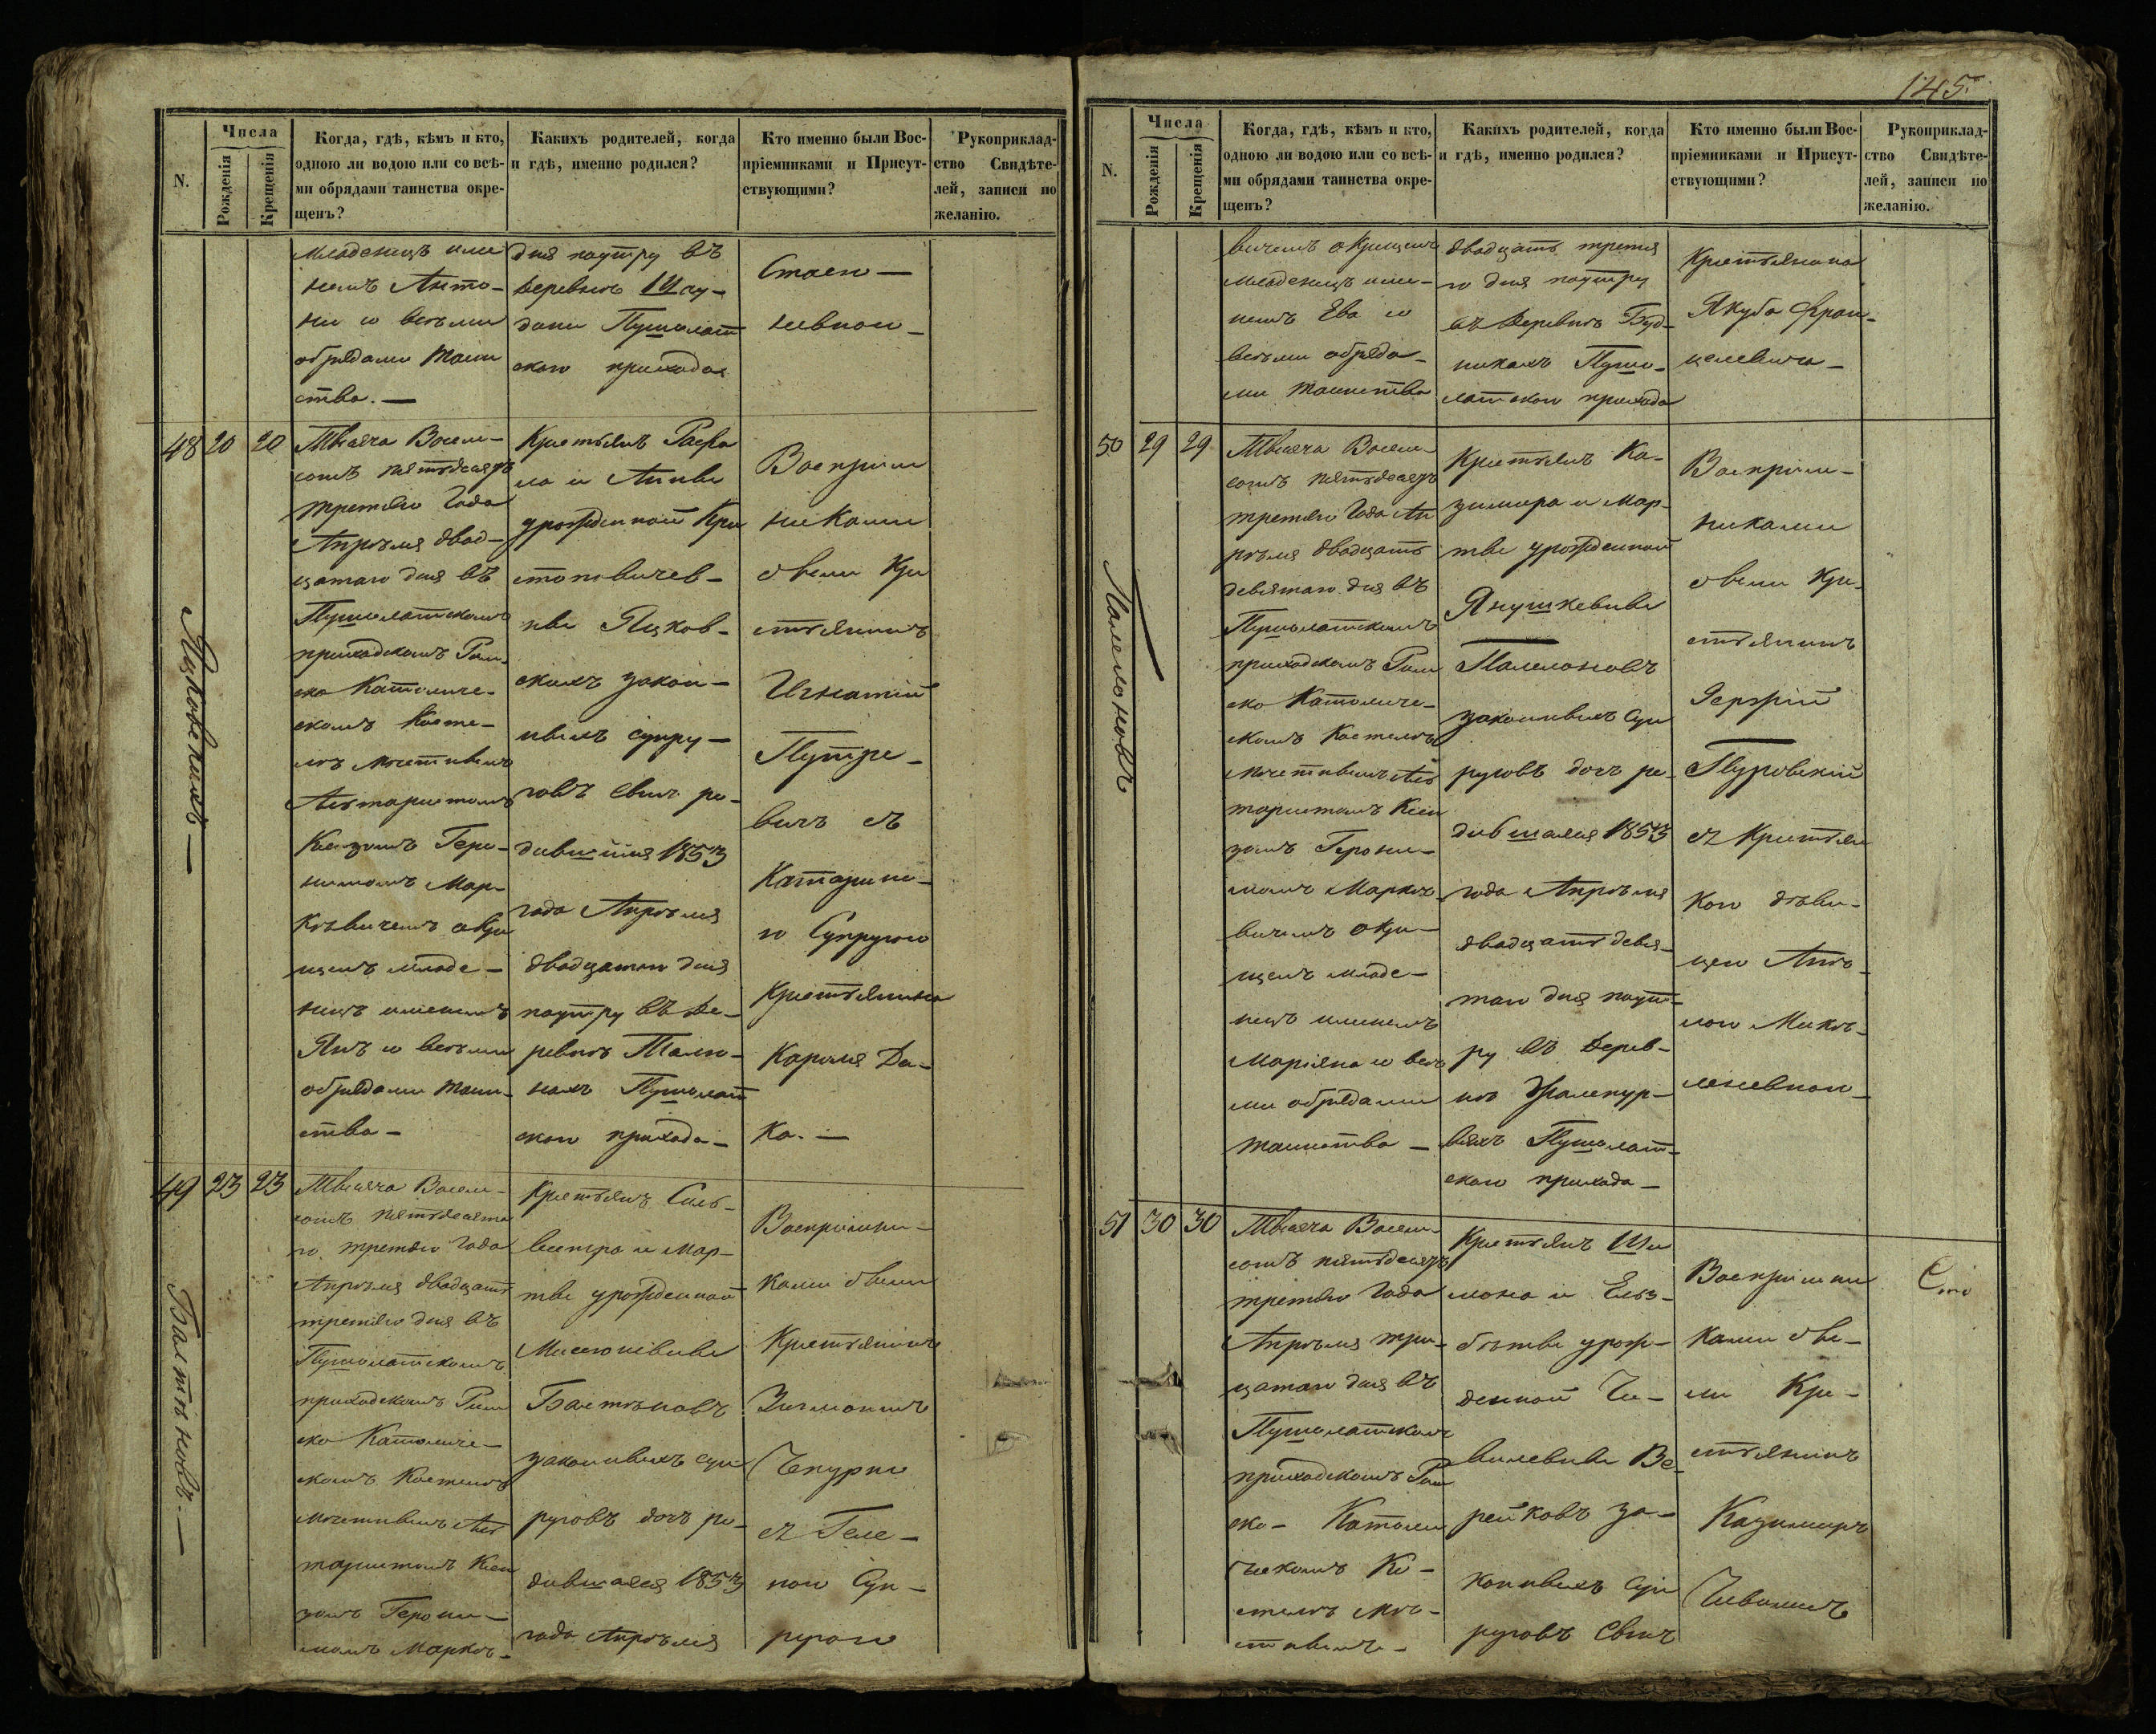 145.
Числа
N.
Рожденія
Крещенія
Когда, гдѣ, кѣмъ и кто,
одною ли водою или со всѣ-
ми обрядами таинства окре-
щенъ?
Какихъ родителей, когда
и гдѣ, именно родился?
Кто именно были Вос-
пріемниками и Присут-
ствующими?
Рукоприклад-
ство Свидѣте-
лей, записи по
желанію.
младенецъ име
немъ Анто-
ни со всѣми
обрядами таин
ства. —
дня поутру въ
деревнѣ
Пушолат
скаго прихода
48 20 20
Яцковскихъ —
Тысяча Восем-
сотъ пятьдесятъ
третьяго Года
Апрѣля двад-
цатаго дня въ
Пушолатскомъ
приходскомъ Рим-
ско Католиче-
скомъ Косте-
лѣ мѣстнымъ
Алтаристомъ
Ксендзомъ Геро-
нимомъ Мар-
кѣвичемъ окре
щенъ младе-
нецъ именемъ
Янъ со всѣми
обрядами таин-
ства —
Крестьянъ Рафа
ла и Анны
урожденной Кри
стоповичев-
ны Яцков-
скихъ закон-
ныхъ супру-
говъ сынъ ро-
дившійся 1853
года Апрѣля
двадцатаго дня
поутру въ де-
ревнѣ
Пушолат
скаго прихода —
Воспріем
никами
были Кре
стьянинъ
Игнатій
Путре-
вичъ съ
Катарин-
ою Супругою
Крестьянина
Кароля Да-
ка. —
49 23 23
Бастѣновъ. —
Тысяча Восем-
сотъ пятьдесята
го третьяго Года
Апрѣля двадцать
третьяго дня въ
Пушолатскомъ
приходскомъ Рим
ско Католиче-
скомъ Костелѣ
мѣстнымъ Ал
таристомъ Ксен
дзомъ Герони-
момъ Маркѣ-
Крестьянъ Силь-
вестра и Мар-
ты урожденной
Бастѣновъ
законныхъ суп
руговъ дочь ро-
дившаяся 1853
года Апрѣля
Воспріемни-
ками были
Крестьянинъ
съ Геле-
ною Суп-
ругою
Числа
N.
Рожденія
Крещенія
Когда, гдѣ, кѣмъ и кто,
одною ли водою или со всѣ-
ми обрядами таинства окре-
щенъ?
Какихъ родителей, когда
и гдѣ, именно родился?
Кто именно были Вос-
пріемниками и Присут-
ствующими?
Рукоприклад-
ство Свидѣте-
лей, записи по
желанію.
вичемъ окрещенъ
младенецъ име-
немъ Ева со
всѣми обряда-
ми таинства
двадцать третья
го дня поутру
въ деревнѣ Буд-
никахъ Пушо-
латскаго прихода
Крестьянина
Якуба Фран-
целевича —
50 29 29
Палемоновъ
Тысяча Восем-
сотъ пятьдесятъ
третьяго Года Ап
рѣля двадцать
девятаго дня въ
Пушолатскомъ
приходскомъ Рим
ско Католиче-
скомъ Костелѣ
мѣстнымъ Ал
таристомъ Ксен
дзомъ Герони-
момъ Маркѣ-
вичемъ окре-
щенъ младе-
нецъ именемъ
Маріяна со всѣ
ми обрядами
таинства —
Крестьянъ Ка-
зимира и Мар-
ты урожденной
Янушкевны
Палемоновъ
законныхъ Суп
руговъ дочь ро-
дившаяся 1853
года Апрѣля
двадцать девя-
таго дня поут-
ру въ дерев-
нѣ
Пушолат-
скаго прихода —
Воспріем-
никами
были Кре-
стьянинъ
Юровскій
съ Крестьян
кою дѣви-
цею
51 30 30
Тысяча Восем-
сотъ пятьдесятъ
третьяго Года
Апрѣля три-
цатаго дня въ
Пушолатскомъ
приходскомъ Рим
ско- Католи
ческомъ Ко-
стелѣ мѣ-
стнымъ-
Крестьянъ Ши
мона и Ельз-
бѣты урож-
денной Чи-
вилевны Ве-
рейковъ за-
конныхъ Суп
руговъ Сынъ
Воспріемни
ками бы-
ли Кре-
стьянинъ
Казимиръ
Чивилисъ
Сто